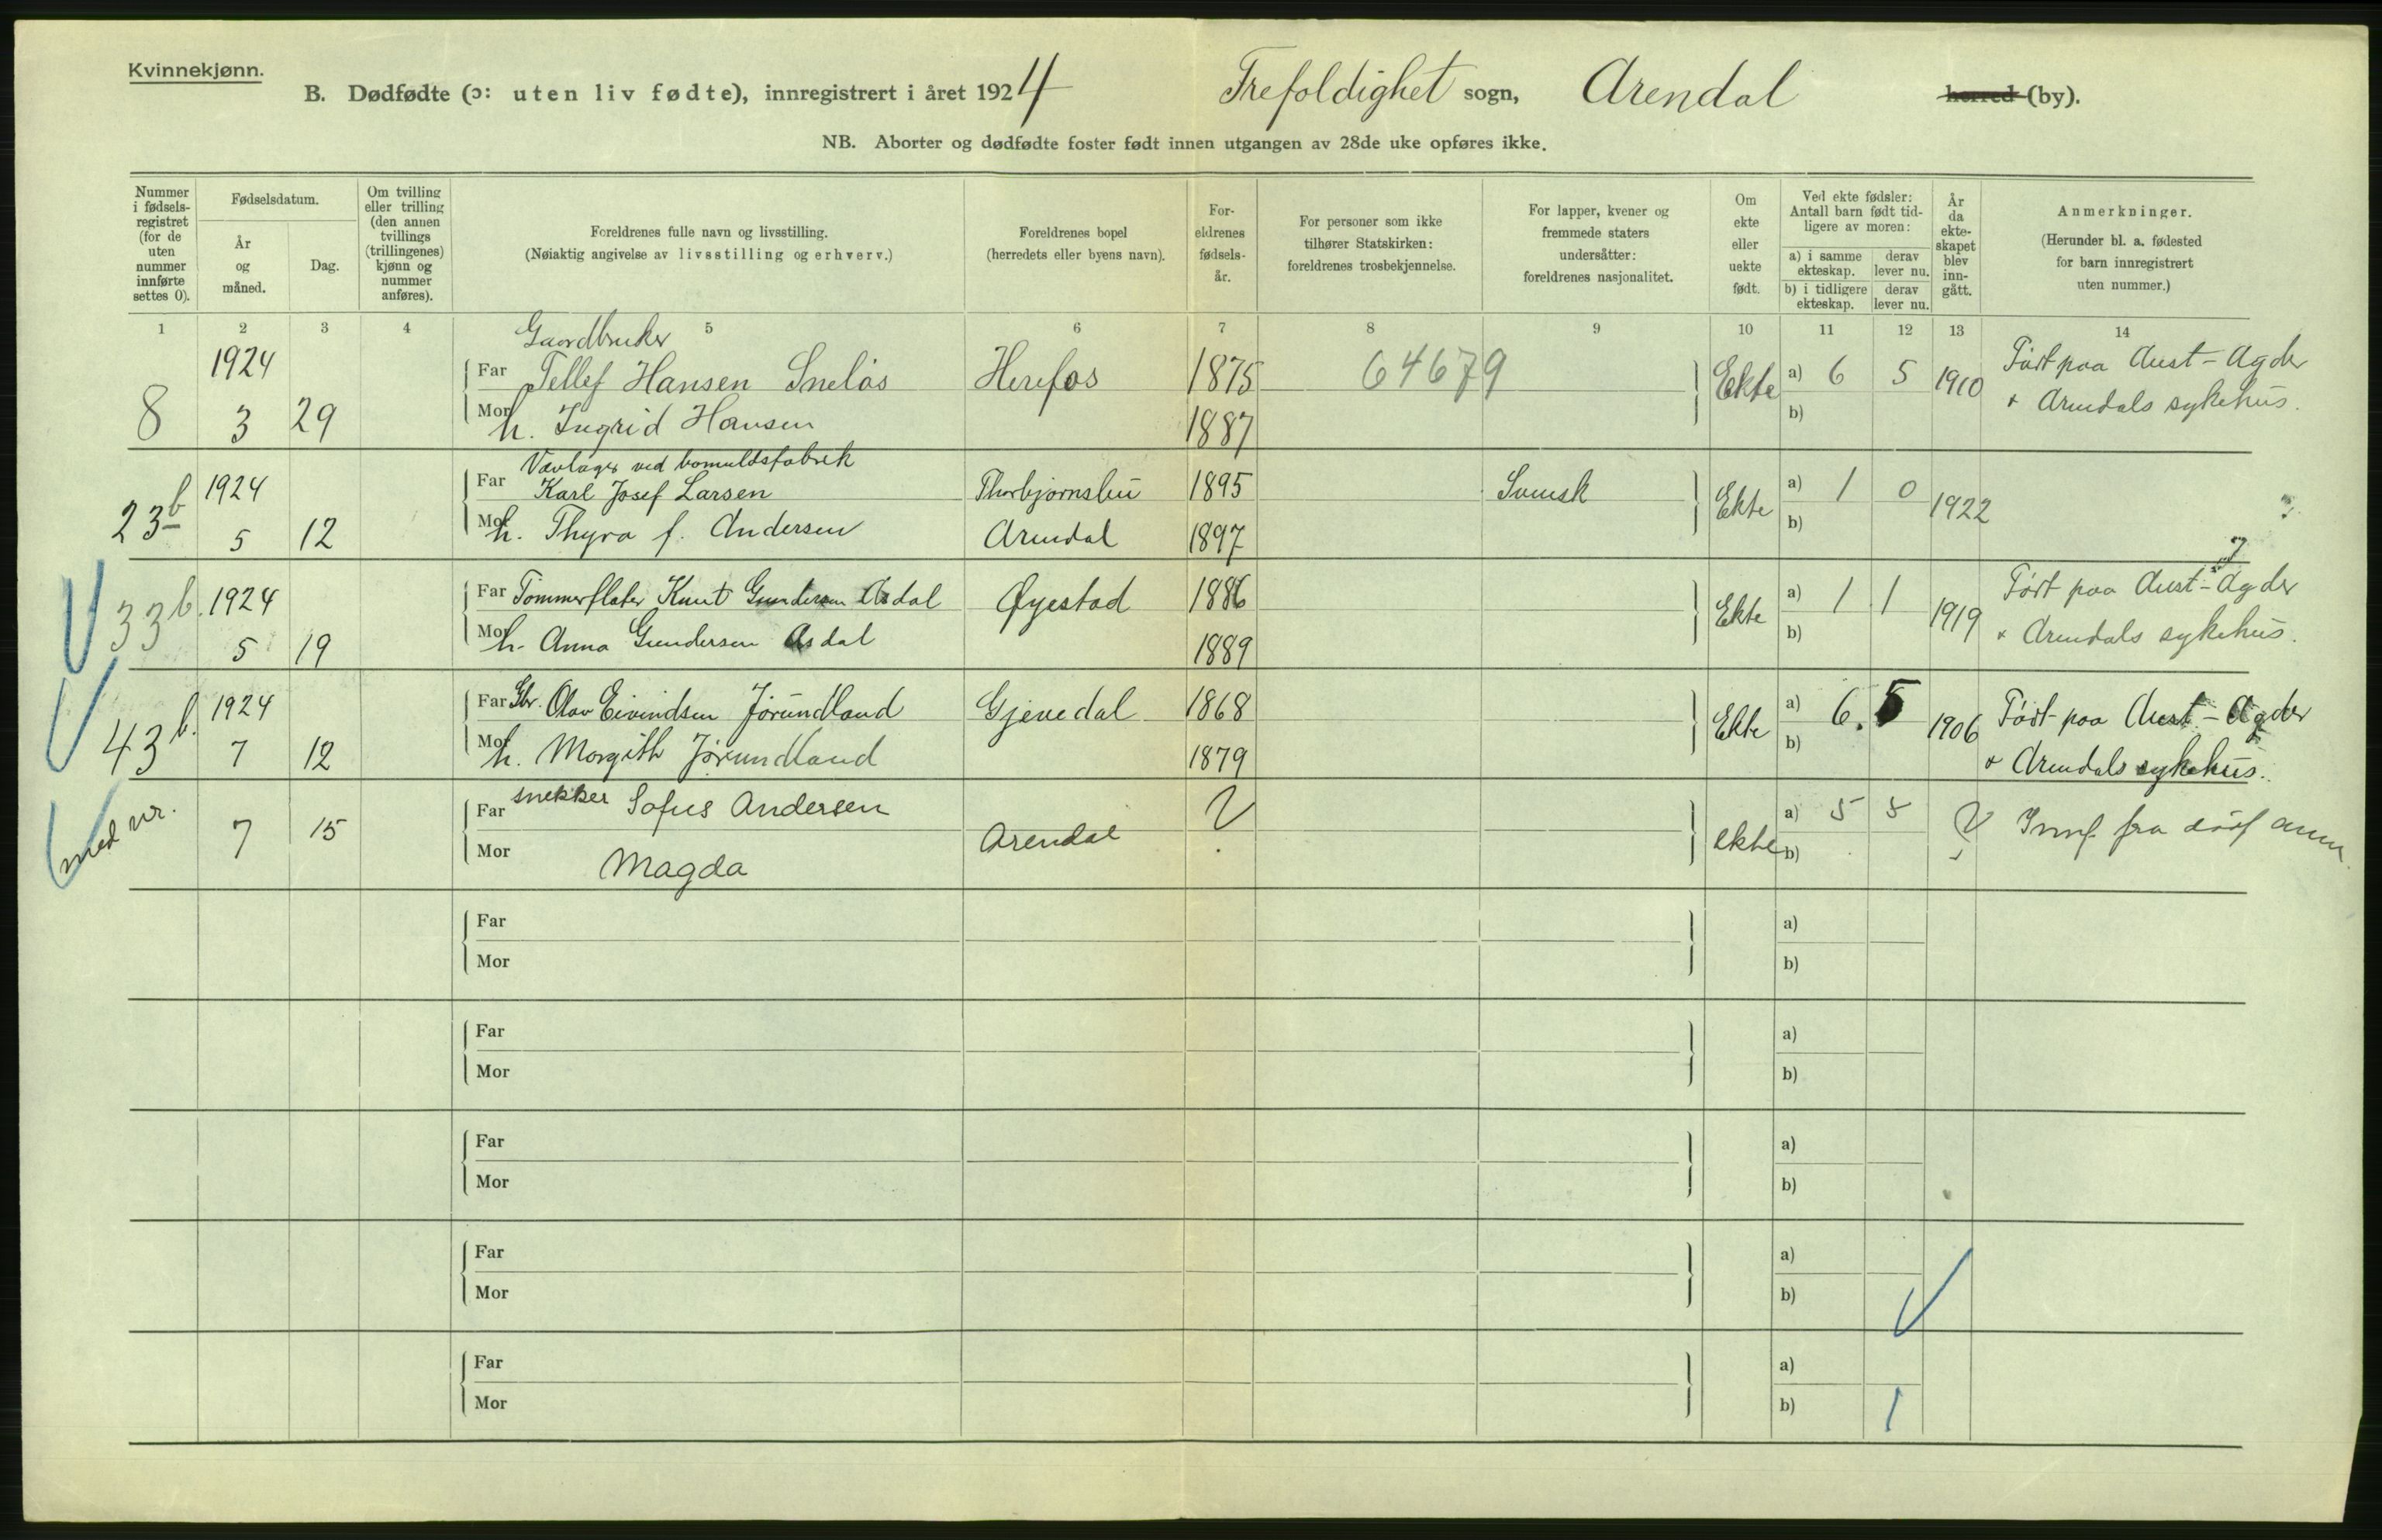 Kvinnekjønn.
B. Dødfødte (ɔ: uten liv fødte), innregistrert i året 1924 Trefoldighet sogn, Arendal herred (by).
NB. Aborter og dødfødte foster født innen utgangen av 28de uke opføres ikke.
Nummer i fødsels-registret (for de uten nummer innførte settes 0).
Fødselsdatum.
År og måned.
Dag.
Om tvilling eller trilling (den annen tvillings (trillingenes) kjønn og nummer anføres).
Foreldrenes fulle navn og livsstilling.
(Nøiaktig angivelse av livsstilling og erhverv.)
Foreldrenes bopel
(herredets eller byens navn).
For-eldrenes fødsels-år.
For personer som ikke tilhører Statskirken: foreldrenes trosbekjennelse.
For lapper, kvener og fremmede staters undersåtter: foreldrenes nasjonalitet.
Om ekte eller uekte født.
Ved ekte fødsler: Antall barn født tid-ligere av moren:
a) i samme ekteskap.
derav lever nu.
b) i tidligere ekteskap.
derav lever nu.
År da ekte-skapet blev inn-gått.
Anmerkninger.
(Herunder bl. a. fødested for barn innregistrert uten nummer.)
1 2 3 4 5 6 7 8 9 10 11 12 13 14
Gaardbruker
8 1924 3 29 Far Tellef Hansen Sneløs Herefos 1875 64679 Ekte a) 6 5 1910 Født paa Aust-Agder
Mor h. Ingrid Hansen 1887 b) + Arendals sykehus.
ved bomuldsfabrik
23b 1924 5 12 Far Karl Josef Larsen Thorbjørnsbu 1895 Svensk Ekte a) 1 0 1922
Mor h. Thyra f. Andersen Arendal 1897 b)
33b. 1924 5 19 Far Tømmerfløter Knut Gundersen Asdal Øyestad 1886 Ekte a) 1 1 1919 Født paa Aust-Agder
Mor h. Anna Gundersen Asdal 1889 b) + Arendals sykehus.
43b. 1924 7 12 Far Gbr. Olav Eivindsen Jørundland Gjevedal 1868 Ekte a) 6. 5 1906 Født paa Aust-Agder
Mor h. Margith Jørundland 1879 b) + Arendals sykehus.
med nr. 7 15 Far snekker Sofus Andersen Arendal ekte a) 5 5 Innf. fra
Mor Magda b)
Far a)
Mor b)
Far a)
Mor b)
Far a)
Mor b)
Far a)
Mor b)
Far a)
Mor b) 1